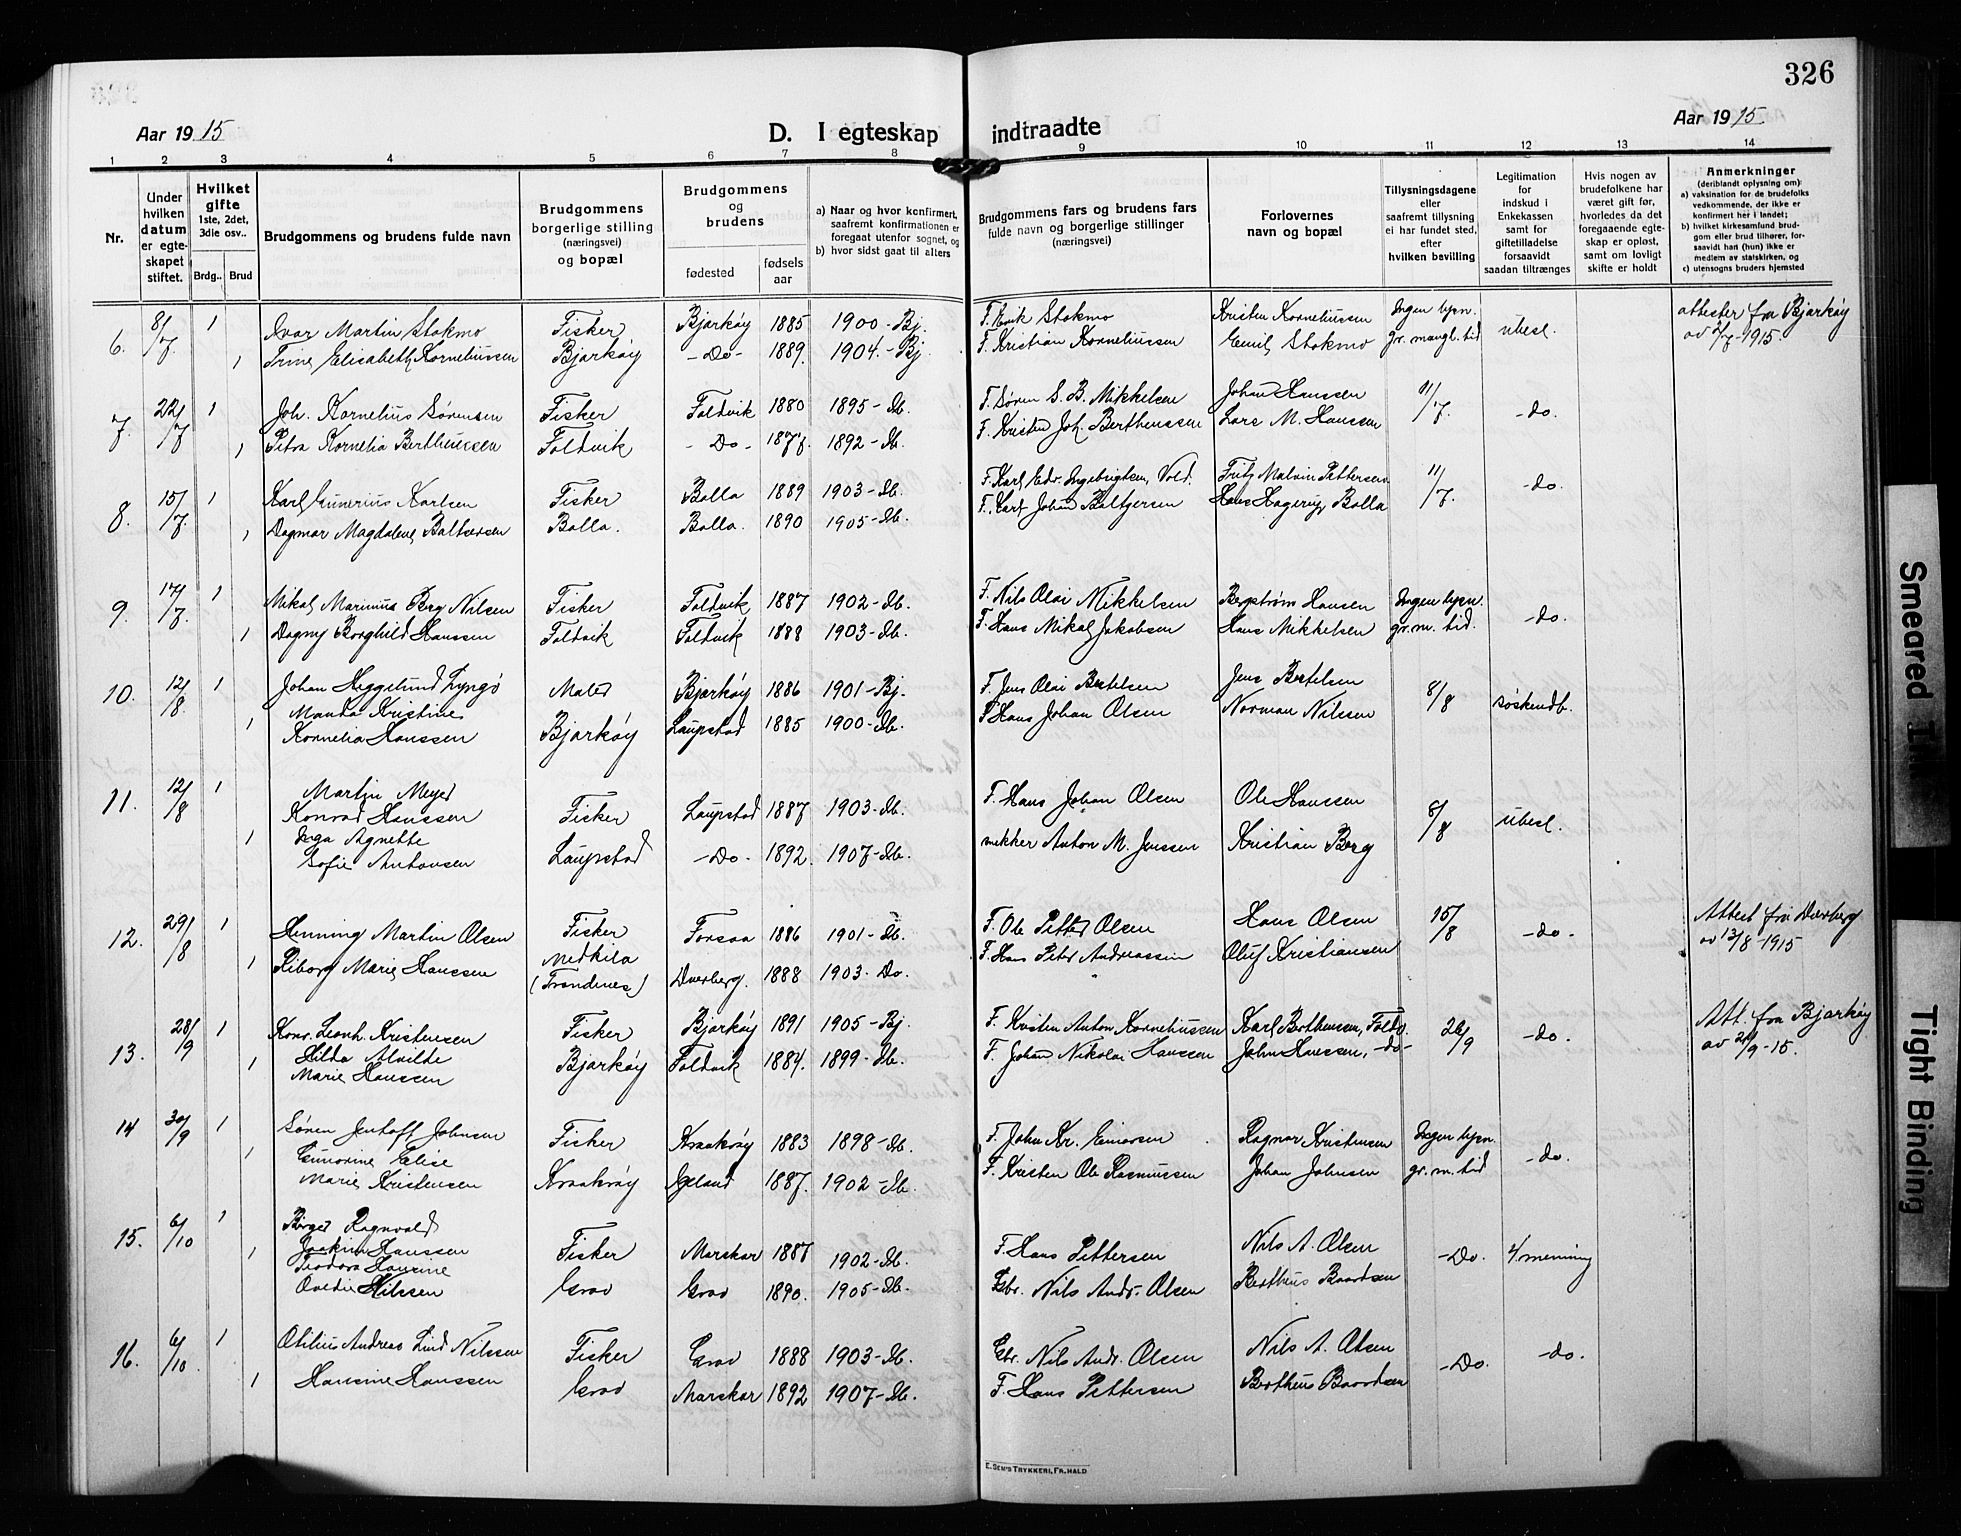 326
Aar 1915
D. I egteskap indtraadte
Aar 1915
1 2 3 4 5 6 7 8 9 10 11 12 13 14
Nr.
Under hvilken datum er egteskapet stiftet.
Hvilket gifte 1ste, 2det, 3die osv..
Brdg.. Brud
Brudgommens og brudens fulde navn
Brudgommens borgerlige stilling (næringsvei) og bopæl
Brudgommens og brudens
fødested
fødsels aar
a) Naar og hvor konfirmert, saafremt konfirmationen er foregaat utenfor sognet, og
b) hvor sidst gaat til alters
Brudgommens fars og brudens fars fulde navn og borgerlige stillinger (næringsvei)
Forlovernes navn og bopæl
Tillysningsdagene eller saafremt tillysning ei har fundet sted, efter hvilken bevilling
Legitimation for indskud i Enkekassen samt for giftetilladelse forsaavidt saadan tiltrænges
Hvis nogen av brudefolkene har været gift før, hvorledes da det foregaaende egteskap er opløst, samt om lovligt skifte er holdt
Anmerkninger (deriblandt oplysning om):
a) vaksination for de brudefolks vedkommende, der ikke er konfirmert her i landet;
b) hvilket kirkesamfund brudgom eller brud tilhører, forsaavidt han (hun) ikke er medlem av statskirken, og
c) utensogns bruders hjemsted
6. 8/7. 1 Ivar Martin Stokmo Fisker Bjarkøy 1885 1900 - Bj. F. Erik Stokmo Kristen Korneliussen Ingen lysn. ubesl. attester fra Bjarkøy
1 Trine Elisabeth Korneliussen Bjarkøy - Do - 1889. 1904. - Bj. F. Kristian Korneliussen Emil Stokmo gr. mangl. tid av 2/7-1915.
7. 22/7 1 Joh. Kornelius Sørensen Fisker Foldvik 1880 1895 - Ib. F. Søren S. B. Mikkelsen Johan Hanssen 11/7. - do.
1 Petra Kornelia Bertheussen Foldvik - Do - 1877. 1892 - Ib. F. Kristen Joh. Bertheussen Lars M. Hanssen
8. 15/7. 1 Karl Gunerius Karlsen Fisker Bolla 1889 1903 - Ib. F. Karl Edv. Ingebrigtsen, Vold. Fritz Malvin Pettersen 11/7. - do.
1 Dagmar Magdalene Baltzersen Bolla. Bolla. 1890 1905 - Ib. F. Karl Johan Baltzersen Hans Hagerup Bolla
9. 17/7. 1 Mikal Marinus Berg Nilsen Fisker Foldvik 1887 1902 - Ib. F. Nils Olai Mikkelsen Bergstrøm Hansen Ingen lysn. - do.
1 Dagny Borghild Hanssen Foldvik Foldvik 1888 1903 - Ib. F. Hans Mikal Jakobsen Hans Mikkelsen gr. m. tid.
10. 12/8. 1 Johan Heggelund Lyngø Maler Bjarkøy 1886 1901 - Bj. F. Jens Olai Bertelsen Jens Bertelsen 8/8 søskendb.
1 Manda Kristine
Kornelia Hanssen Bjarkøy Laupstad 1885 1900 - Ib. F. Hans Johan Olsen Norman Nilssen
11. 12/8 1 Martin Meyer
Konrad Hanssen Fisker Laupstad 1887 1903 - Ib. F. Hans Johan Olsen Ole Hanssen 8/8 ubesl.
1 Inga Agnette
Sofie Antonsen Laupstad - Do - 1892. 1907 - Ib. Anton M. Jenssen Kristian Berg
12. 29/8 1 Henning Martin Olsen Fisker Forsaa 1886 1901 - Ib. F. Ole Petter Olsen Hans Olsen 15/8 - do - Attest fra Dverberg
1 Riborg Marie Hanssen Medkila (Trondenes) Dverberg. 1888 1903 - Do. F. Hans Peter Andreassen Oluf Kristiansen av 13/8-1915
13. 28/9 1 Konr. Leonh. Kristensen Fisker Bjarkøy 1891 1905 - Bj. F. Kristen Anton Korneliussen Karl Berthensen, Foldv. 26/9 - do. Att. fra Bjarkøy
1 Hilda Alvilde
Marie Hanssen Bjarkøy Foldvik 1884. 1899 - Ib. F. Johan Nikolai Hanssen John Hanssen, - do - av 21/9-15.
14 30/9 1 Søren Jentoft Johnsen Fisker Kraakrøy 1883 1898 - Ib. F. John Kr. Einarsen Ragnar Kristensen Ingen lysn. - do.
1 Gunorine Elise
Marie Kristensen Kraakrøy Igeland 1887. 1902 - Ib. F. Kristen Ole Rasmussen Johan Johnsen gr. m. tid
15. 6/10 1 Birger Ragnvald
Joakim Hanssen Fisker Marskar 1887 1902 - Ib. F. Hans Pettersen Nils A. Olsen - Do. 4. menning
1 Teodora Hansine
Ovedie Nilssen Grov Grov 1890. 1905 - Ib. Gbr. Nils Andr. Olsen Bertheus Baardsen
16. 6/10 1 Otilius Andreas Lind Nilssen Fisker Grov 1888 1903 - Ib. Gbr. Nils Andr. Olsen Nils A. Olsen - Do. - do.
1 Hansine Hanssen Grov Marskar 1892 1907 - Ib. F. Hans Pettersen Bertheus Baardsen
E. Sem's Trykkeri, Fr.hald
Smeared Ink
Tight Binding